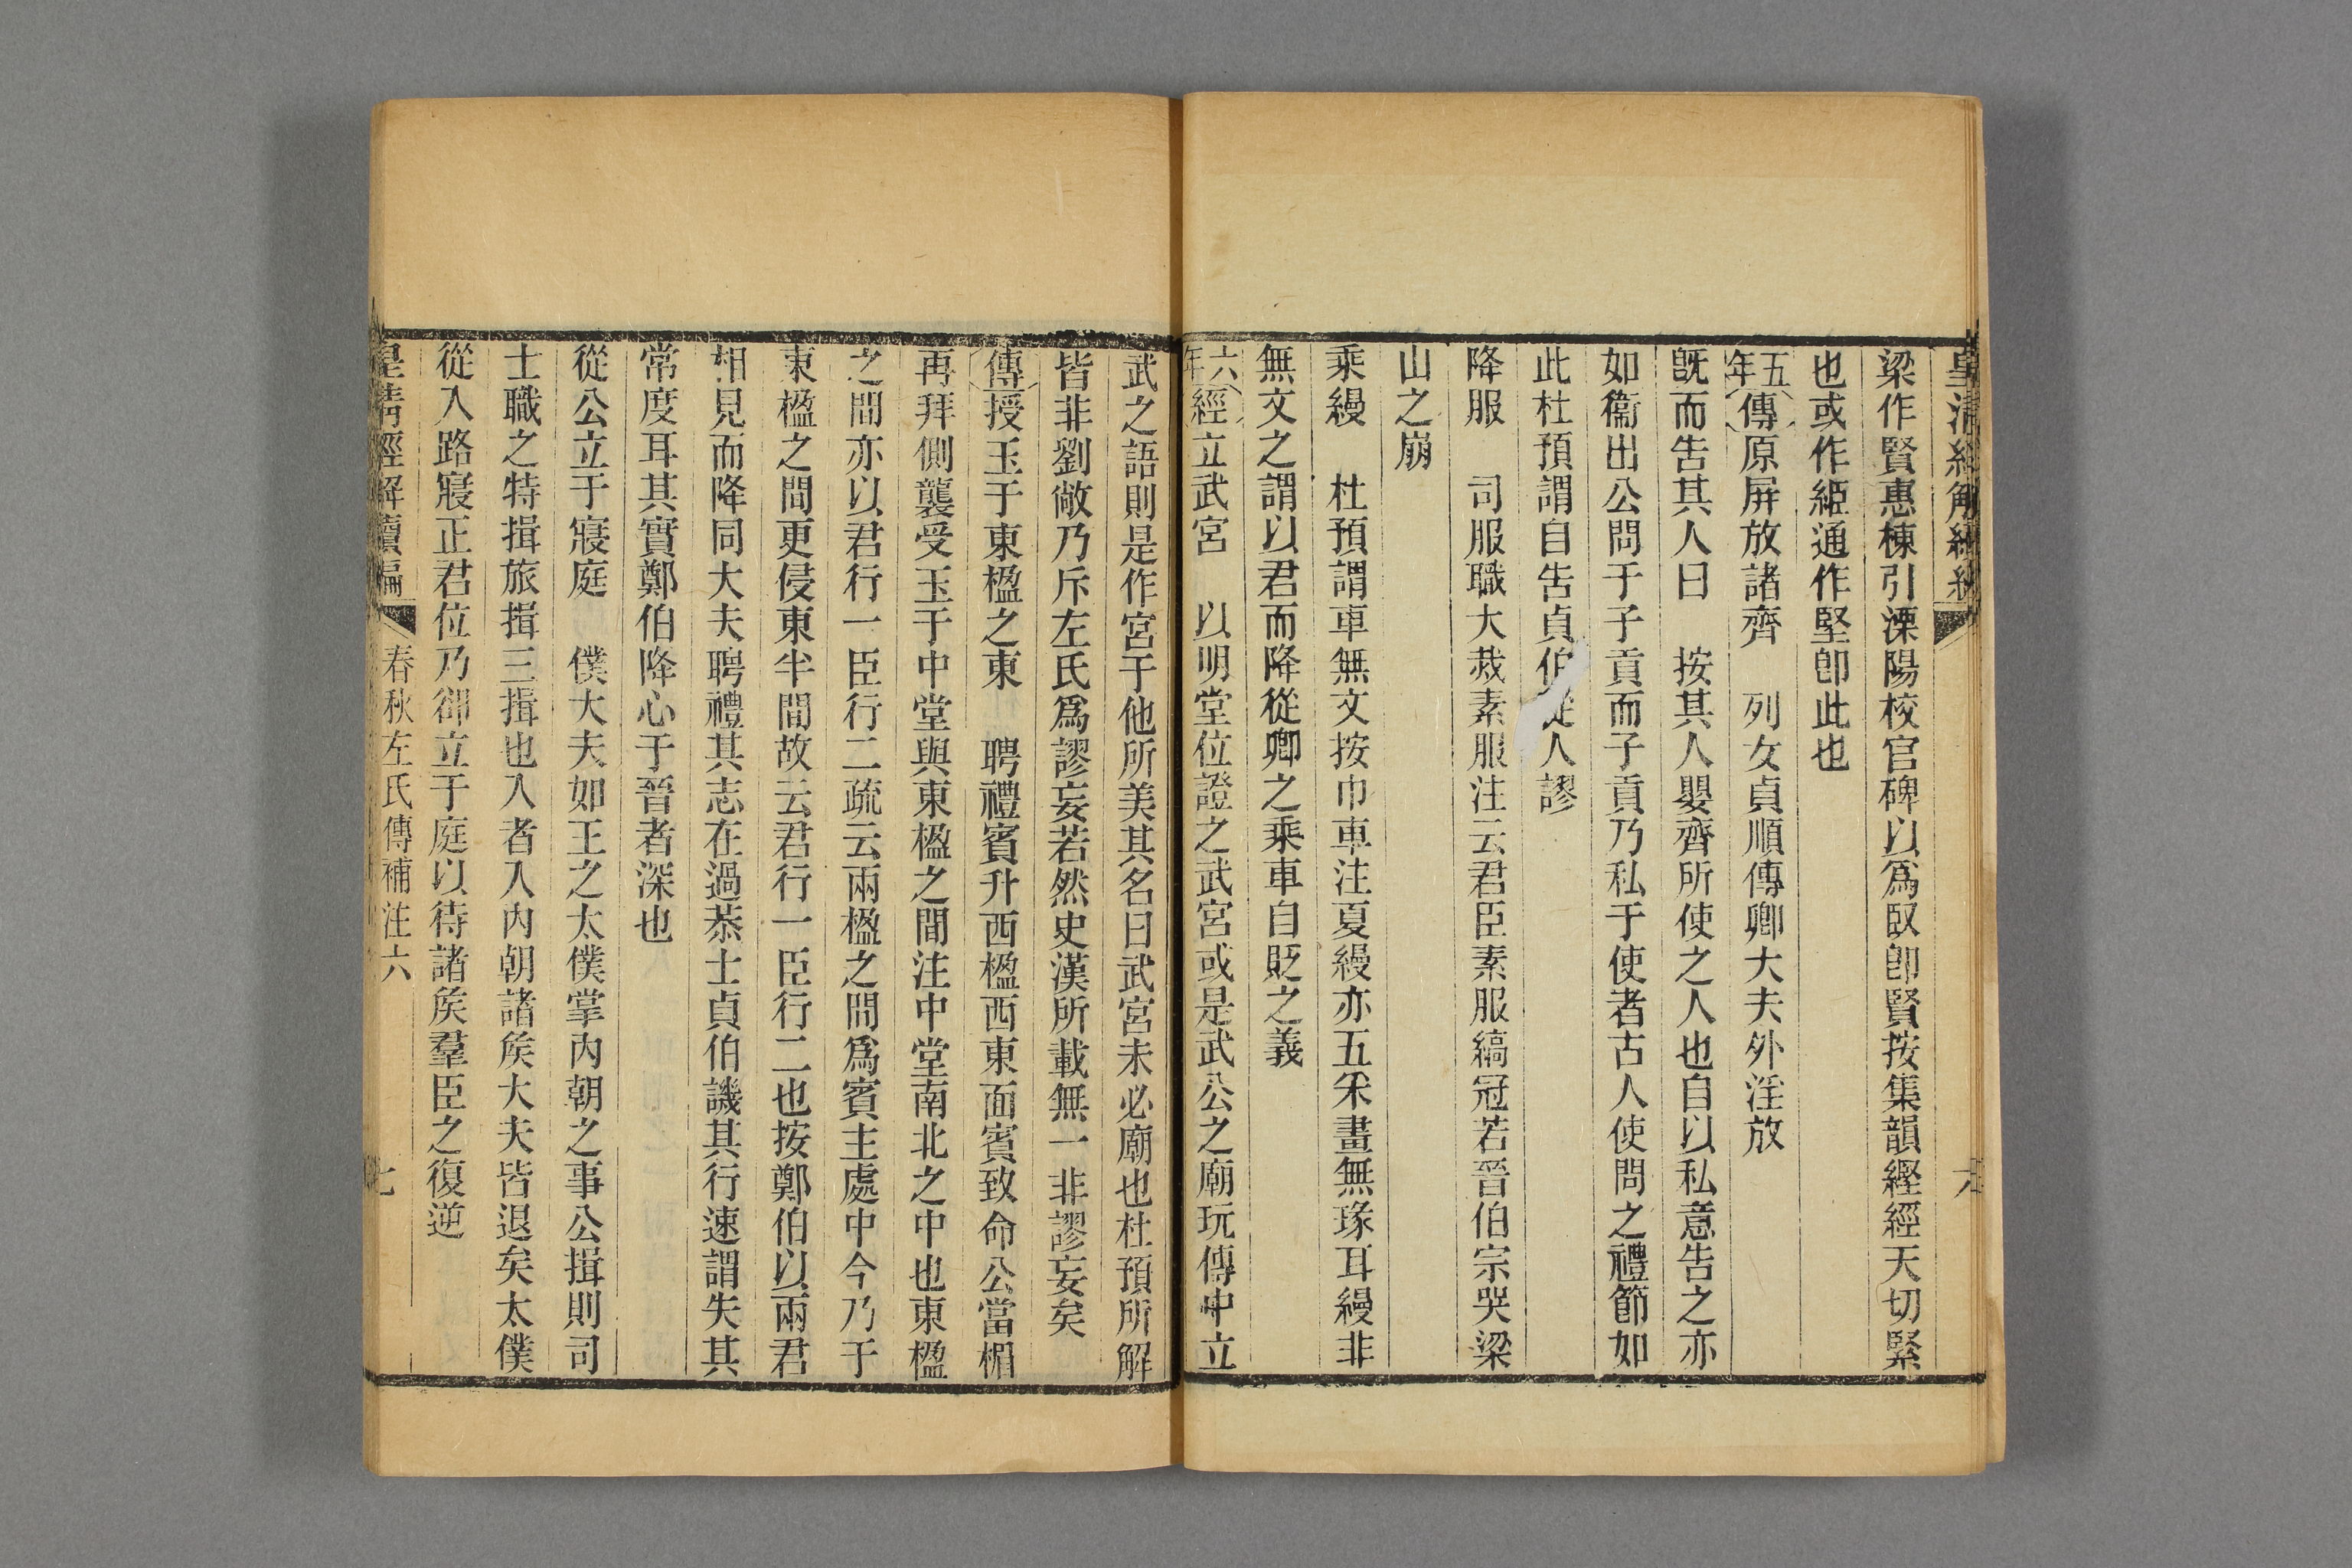 皇清經解續編
梁作賢惠棟引溧陽校官碑以爲臤卽賢按集韻䌑經天切緊
也或作䌑通作堅卽此也
五年傳原屏放諸齊　列女貞順傳卿大夫外淫放
旣而告其人曰　按其人嬰齊所使之人也自以私意告之亦
如衞出公問于子貢而子貢乃私于使者古人使問之禮節如
此杜預謂自告貞伯從人謬
降服　司服職大烖素服注云君臣素服縞冠若晉伯宗哭梁
山之崩
乘縵　杜預謂車無文按巾車注夏縵亦五采畫無瑑耳縵非
無文之謂以君而降從卿之乘車自貶之義
六年經立武宮　以明堂位證之武宮或是武公之廟玩傳中立
武之語則是作宮于他所美其名曰武宮未必廟也杜預所解
皆非劉敞乃斥左氏爲謬妄若然史漢所載無一非謬妄矣
傳授玉于東楹之東　聘禮賓升西楹西東面賓致命公當楣
再拜側襲受玉于中堂與東楹之間注中堂南北之中也東楹
之間亦以君行一臣行二疏云兩楹之間爲賓主處中今乃于
東楹之間更侵東半間故云君行一臣行二也按鄭伯以兩君
相見而降同大夫聘禮其志在過恭士貞伯譏其行速謂失其
常度耳其實鄭伯降心于晉者深也
從公立于寢庭　僕大夫如王之太僕掌內朝之事公揖則司
士職之特揖旅揖三揖也入者入內朝諸矦大夫皆退矣太僕
從入路寢正君位乃卻立于庭以待諸矦羣臣之復逆
皇清經解續編　春秋左氏傳補注六　七